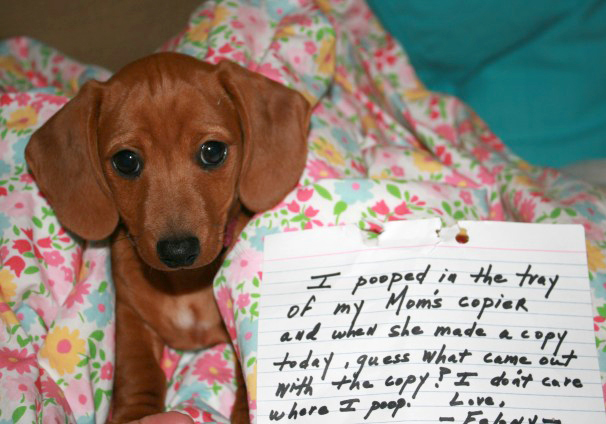 I pooped in the tray
of my Mom's copier
and when she made a copy
today, guess what came out
with the copy? I don't care
where I poop. Love,